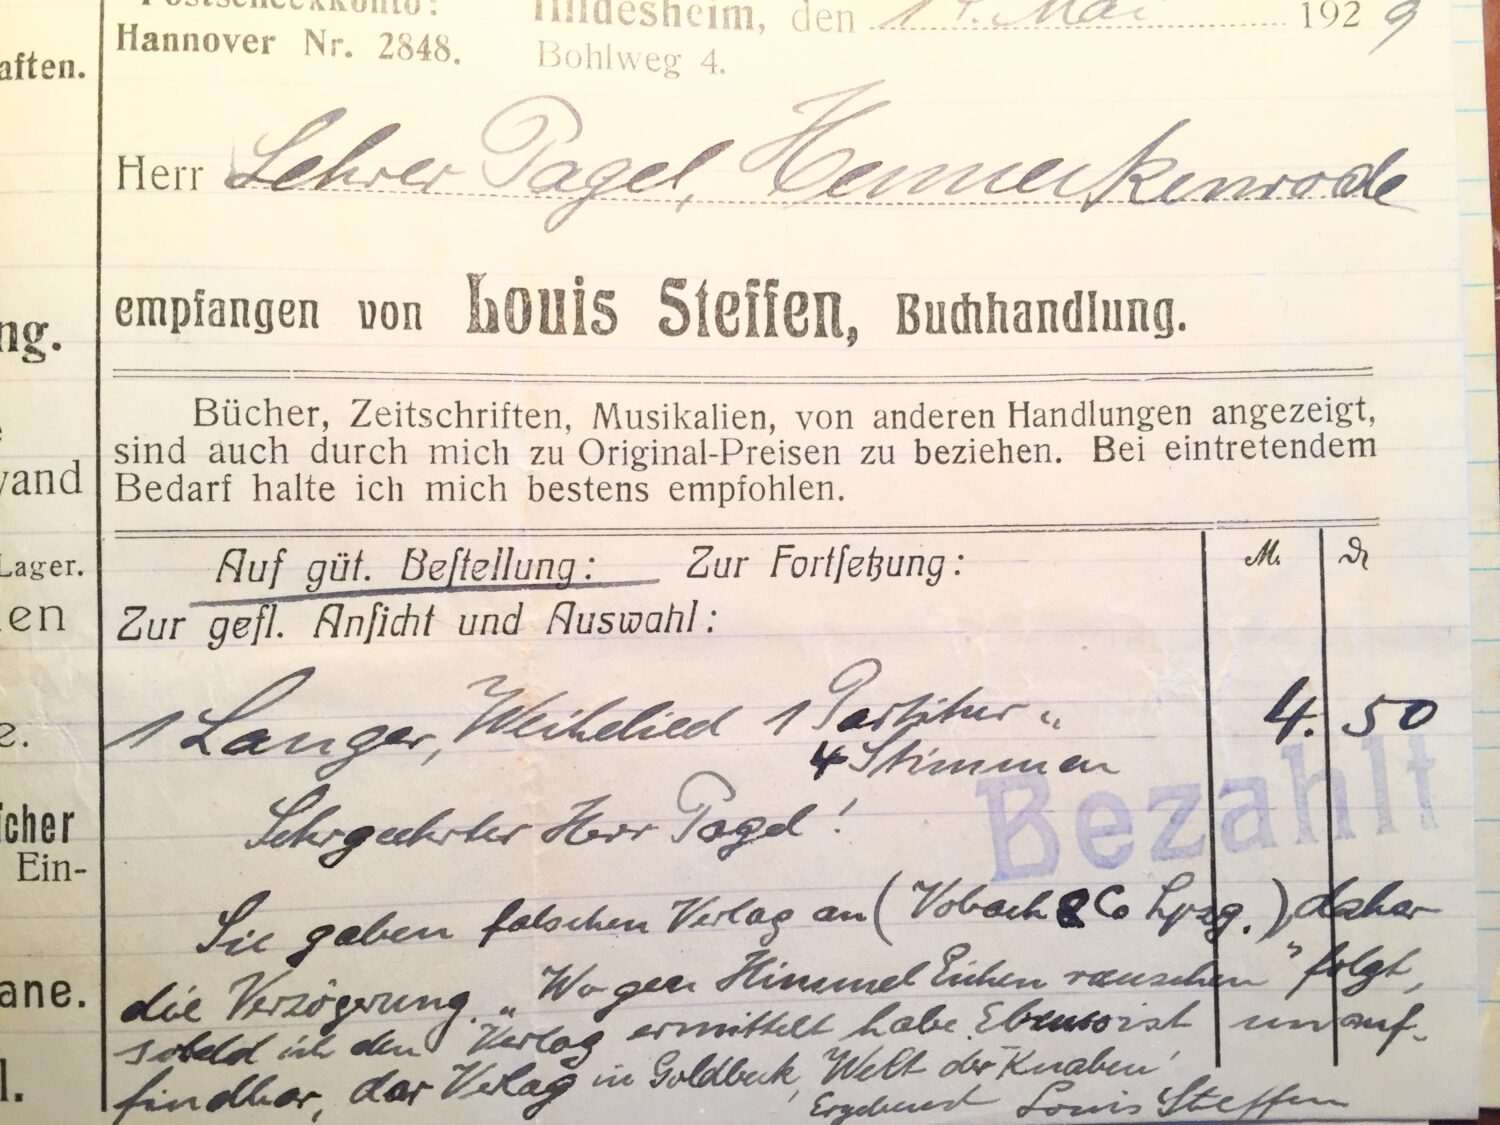 Postscheckkonto:
Hannover Nr. 2848.
Hildesheim, den 14. Mai 1929
Bohlweg 4.
aften.
Herr Lehrer Pagel, Hemmerkenrode
empfangen von Louis Steffen, Buchhandlung.
ng.
Bücher, Zeitschriften, Musikalien, von anderen Handlungen angezeigt,
sind auch durch mich zu Original-Preisen zu beziehen. Bei eintretendem
Bedarf halte ich mich bestens empfohlen.
vand
Lager.
en
Auf güt. Bestellung: Zur Fortsetzung: M.
Zur gefl. Ansicht und Auswahl:
1 Langer, Weihelied 1 Partitur „ 4. 50
4 Stimmen
e.
Bezahlt
Sehrgeehrter Herr Pagel!
icher
Ein-
Sie gaben falschen Verlag an (Vobach & Co Lpzg.) daher
die Verzögerung. „Wo gen Himmel Eichen rauschen" folgt,
sobald ich den Verlag ermittelt habe. Ebenso ist unauf-
findbar, der Verlag in Goldbeck, Welt der Knaben'
Ergebenst Louis Steffen
ane.
l.